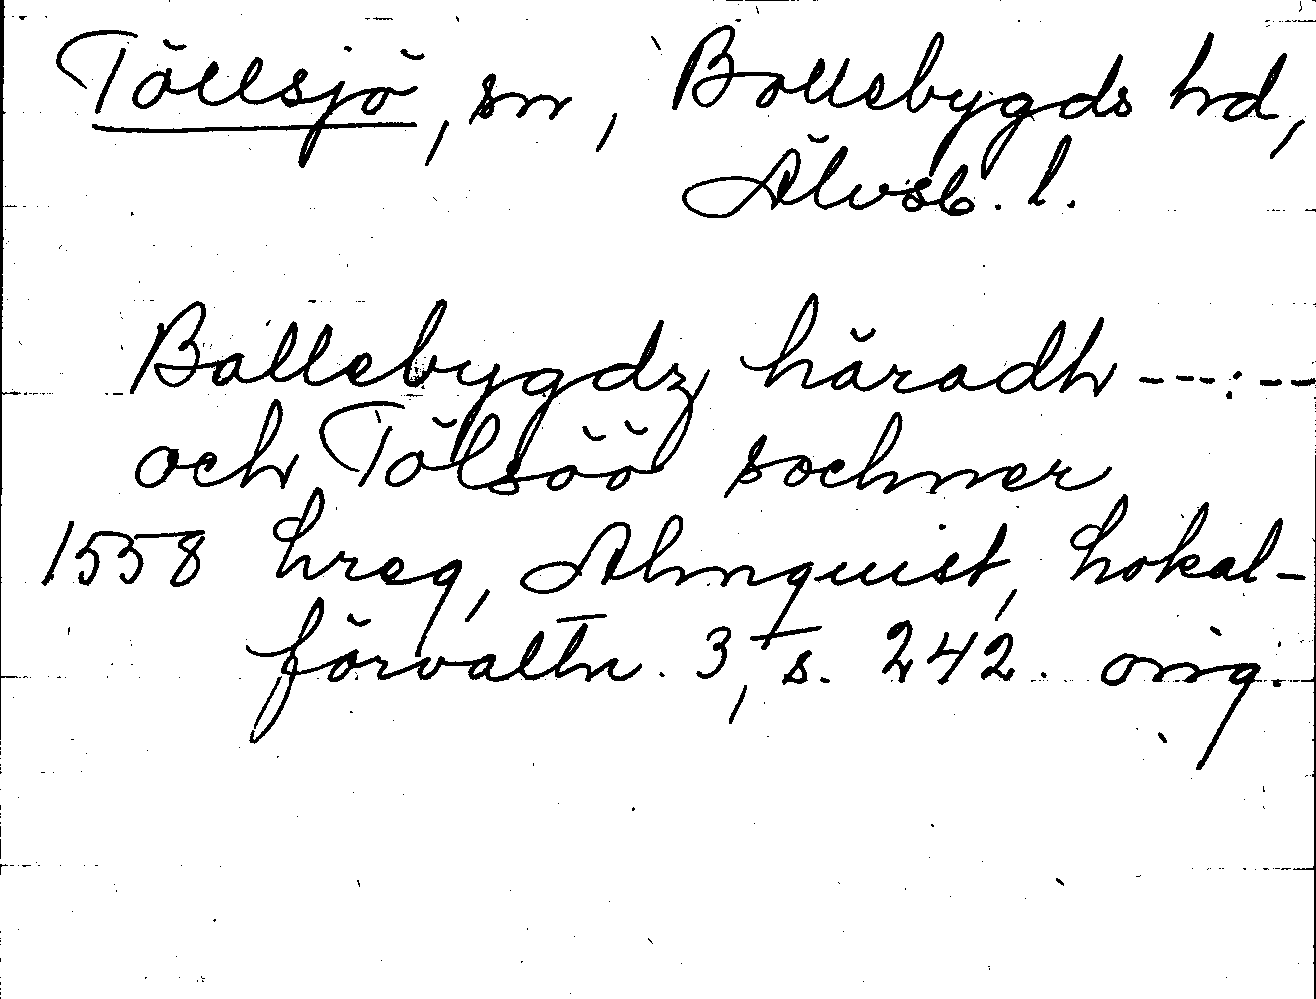 Töllsjö, sn, Bollebygds hd,
Älvsb. l.
Bollebygdz häradh ---:--
och Tölsöö sochner
1558 hreg, Almquist, Lokal-
förvaltn. 3, s. 242. orig.